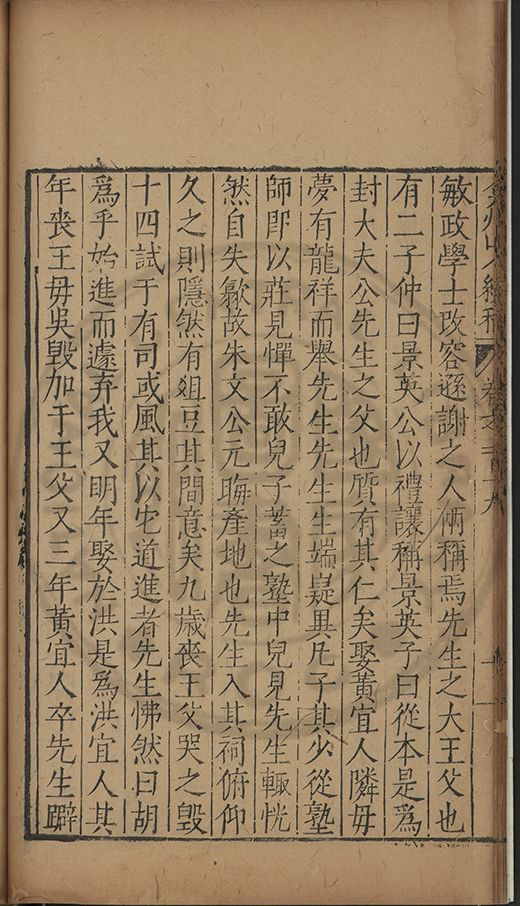 弇州山人續稿 卷之一百十九
敏政學士改容遜謝之人兩稱焉先生之大王父也
有二子仲曰景英公以禮讓稱景英子曰從本是爲
封大夫公先生之父也質有其仁矣娶黃宜人隣毋
夢有龍祥而舉先生先生生端嶷異凡子其少從塾
師即以莊見憚不敢兒子蓄之塾中兒見先生輙恍
然自失歙故朱文公元晦產地也先生入其祠俯仰
久之則隱然有俎豆其間意矣九歲喪王父哭之毀
十四試于有司或風其以它道進者先生怫然曰胡
爲乎始進而遽弃我又明年娶於洪是爲洪宜人其
年喪王毋吳毀加于王父又三年黃宜人卒先生躃